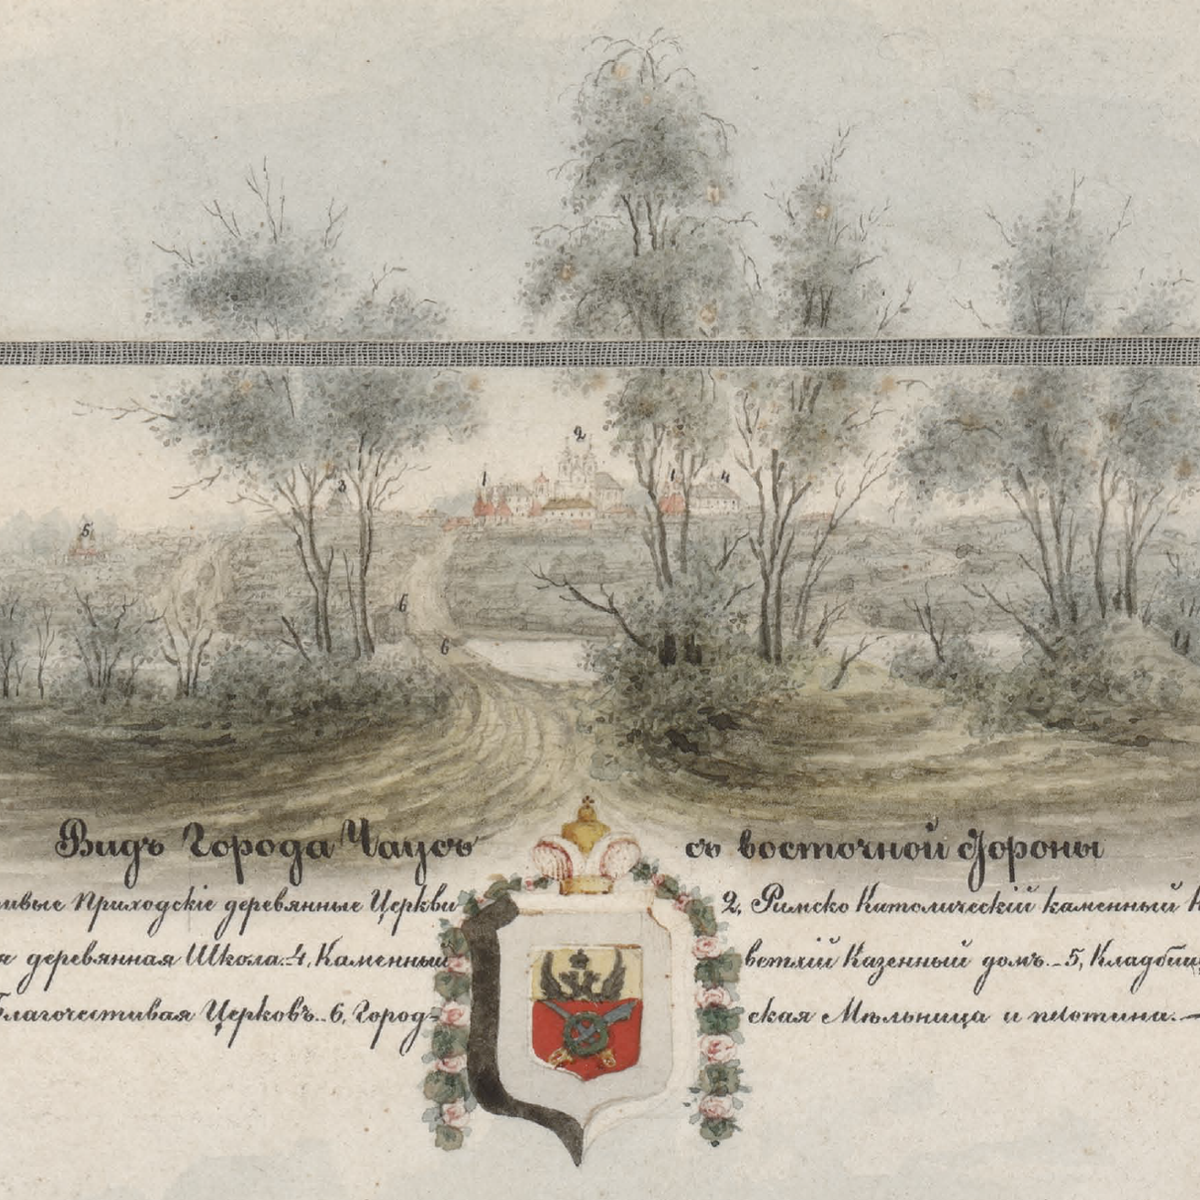 2
1
1
4
3
5
6
6
Видъ Города Чаусъ съ восточной стороны
Приходскіе деревянные Церкви 2, Римско Католическій каменный
деревянная Школа. 4, Каменный ветхій Казенный домъ. 5,
Благочестивая Церковъ. 6, Городская Мѣльница и плотина.